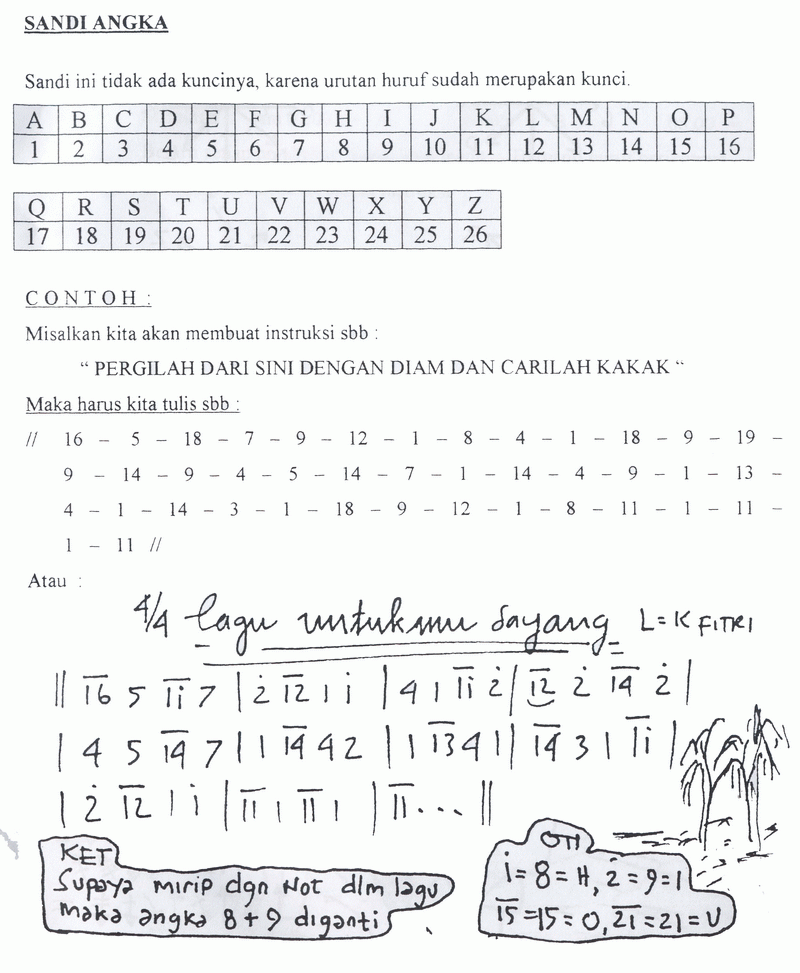 SANDI ANGKA
Sandi ini tidak ada kuncinya, karena urutan huruf sudah merupakan kunci.
A B C D E F G H I J K L M N O P
1 2 3 4 5 6 7 8 9 10 11 12 13 14 15 16
Q R S T U V W X Y Z
17 18 19 20 21 22 23 24 25 26
C O N T O H :
Misalkan kita akan membuat instruksi sbb :
“ PERGILAH DARI SINI DENGAN DIAM DAN CARILAH KAKAK “
Maka harus kita tulis sbb :
// 16 – 5 – 18 – 7 – 9 – 12 – 1 – 8 – 4 – 1 – 18 – 9 – 19 –
9 – 14 – 9 – 4 – 5 – 14 – 7 – 1 – 14 – 4 – 9 – 1 – 13 –
4 – 1 – 14 – 3 – 1 – 18 – 9 – 12 – 1 – 8 – 11 – 1 – 11 –
1 – 11 //
Atau :
4/4 lagu untukmu sayang L = K FITRI
|| 1̅6̅ 5 1̅1̅̇ 7 | 2̇ 1̅2̅ 1 1̇ | 4 1 1̅1̅̇ 2̇ | 1̅2̅ 2̇ 1̅4̅ 2̇ |
| 4 5 1̅4̅ 7 | 1 1̅4̅ 4 2 | 1 1̅3̅ 4 1 | 1̅4̅ 3 1 1̅1̅̇ |
| 2̇ 1̅2̅ 1 1̇ | 1̅1̅ 1 1̅1̅ 1 | 1̅1̅ . . . ||
KET
Supaya mirip dgn Not dlm lagu
maka angka 8 + 9 diganti
OTI
1̇ = 8 = H, 2̇ = 9 = I
1̅5̅ = 15 = O, 2̅1̅ = 21 = U